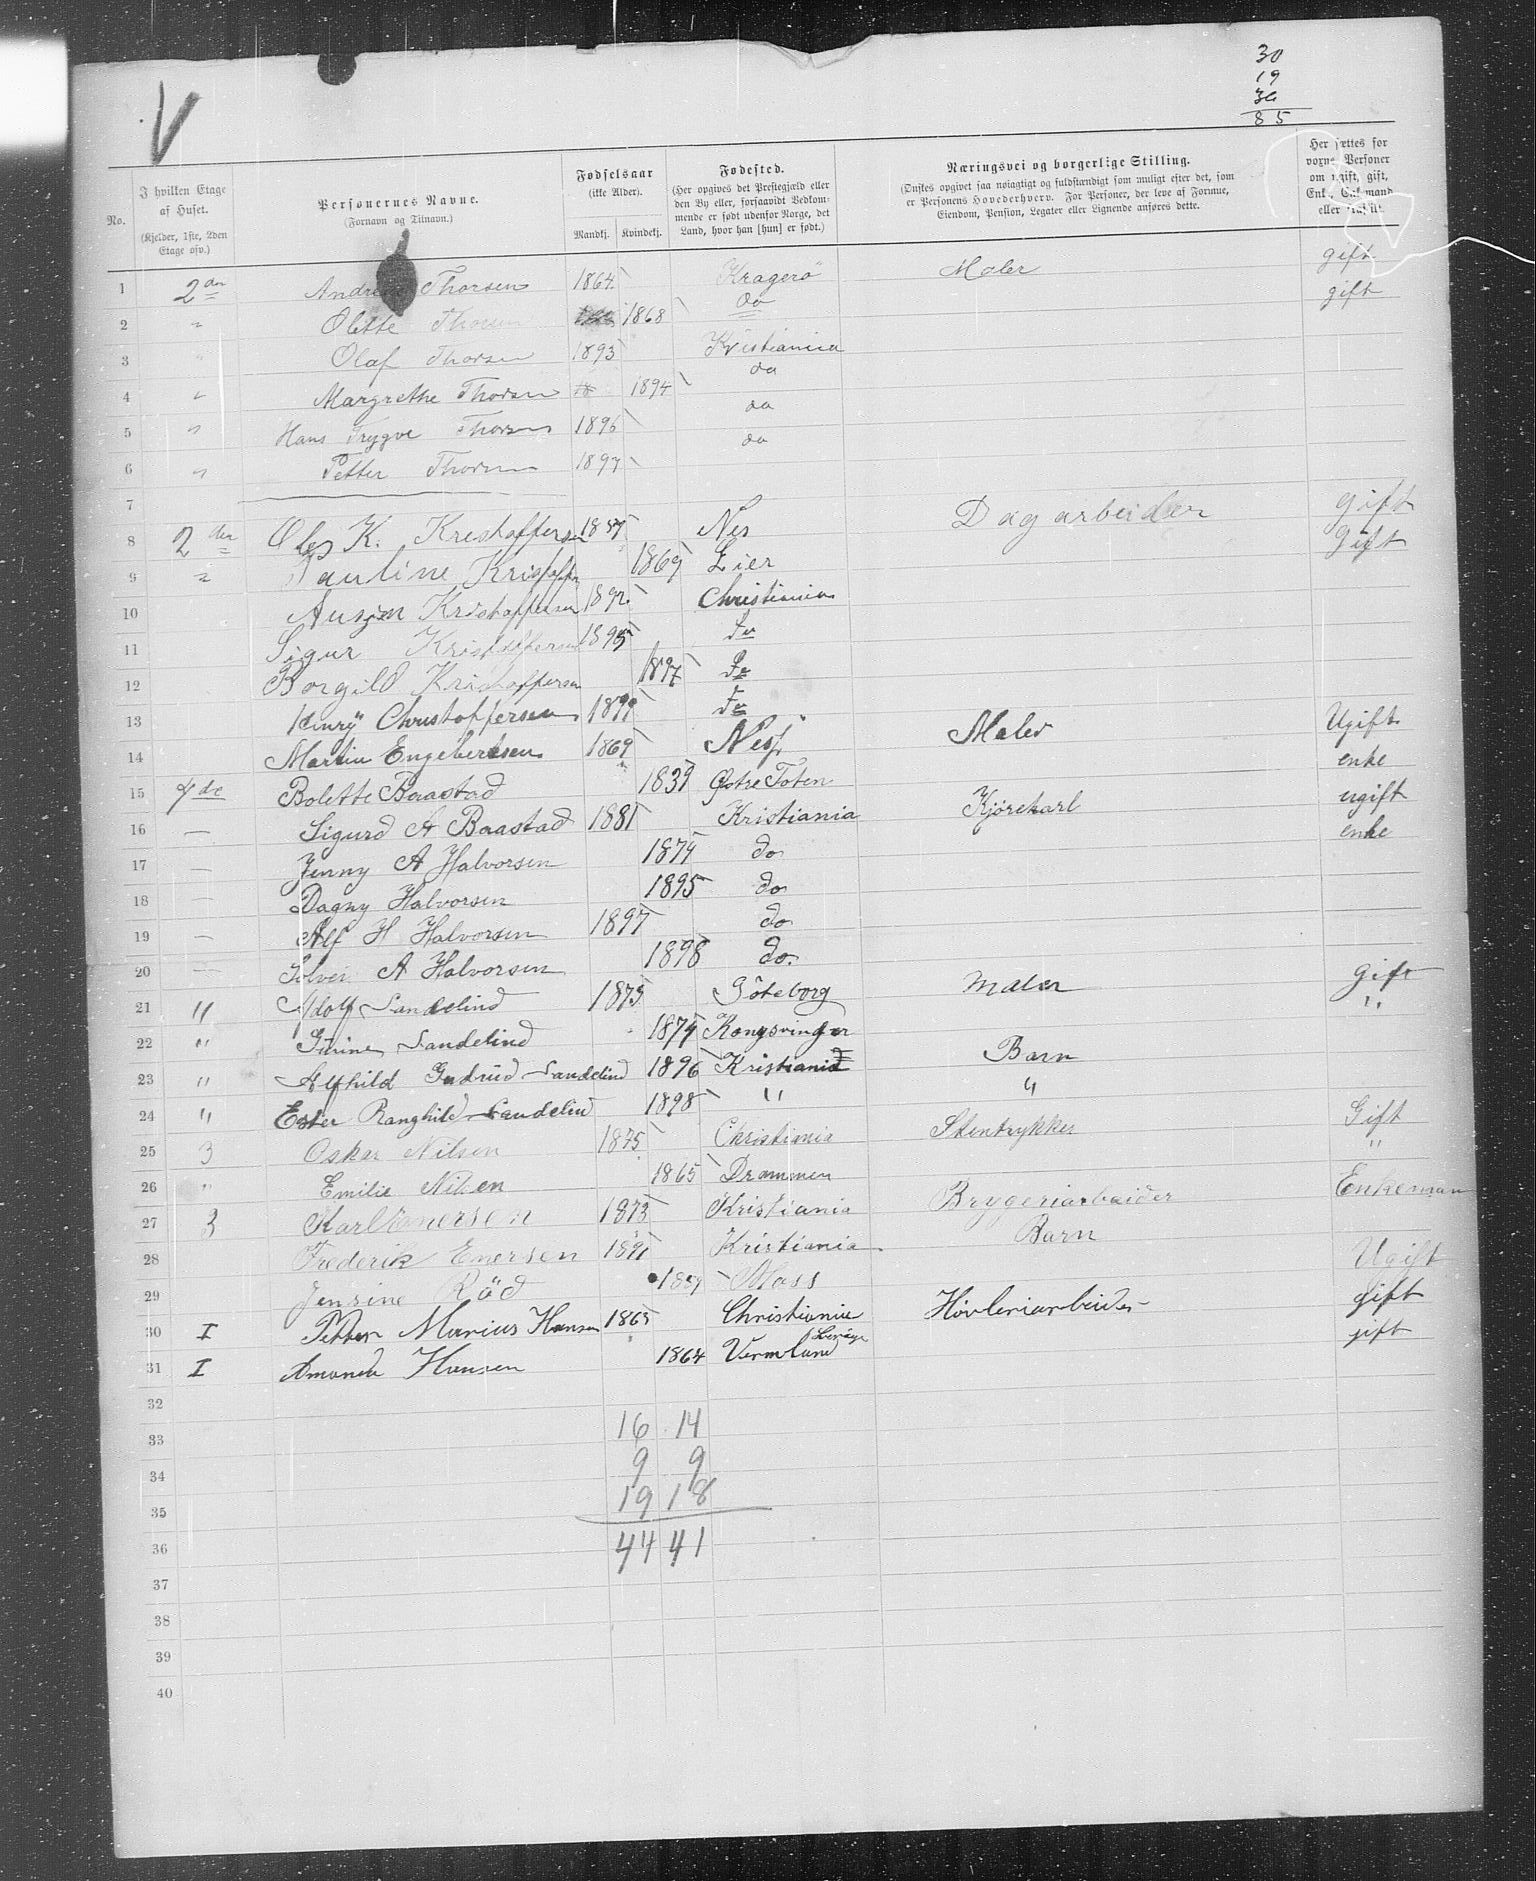 V
30
19
36
85
No.
I hvilken Etage af Huset. (Kjelder, 1ste, 2den Etage osv.)
Personernes Navne. (Fornavn og Tilnavn.)
Fødselsaar (ikke Alder). Mandkj. Kvindekj.
Fødested. (Her opgives det Prestegjæld eller den By eller, forsaavidt Vedkommende er født udenfor Norge, det Land, hvor han [hun] er født.)
Næringsvei og borgerlige Stilling. (Ønskes opgivet saa nøiagtigt og fuldstændigt som muligt efter det, som er Personens Hovederhverv. For Personer, der leve af Formue, Eiendom, Pension, Legater eller Lignende anføres dette.)
Her sættes for voxne Personer om ugift, gift, Enke, Enkemand eller fraskilt.
1 2den Thorsen 1864 Kragerö Maler gift
2 " Olette Thorsen 1868 do gift
3 " Olaf Thorsen 1893 Kristiania
4 " Margrethe Thorsen 1894 da
5 " Hans Trygve Thorsen 1896 da
6 " Petter Thorsen 1897 da
7
8 2den K. Kristoffersen Nes Dagarbeider gift
9 " Pauline Kristoffe 1869 Lier Gift
10 Kristoffersen 1892 Christiania
11 Sigur Kristoffersen 1895 do
12 Borgild Kristoffersen 1897 Do
13 Henry Christoffersen 1899 Do
14 Martin Engebertsen 1869 Nes Maler Ugift
15 4de Bolette Baastad 1839 Østre Toten enke
16 — Sigurd A Baastad 1881 Kristiania Kjørekarl ugift
17 — Jenny A Halvorsen 1874 do enke
18 — Dagny Halvorsen 1895 do
19 — Alf H Halvorsen 1897 do
20 — Solvei A Halvorsen 1898 do.
21 " Adolf Sandelind 1875 Göteborg Maler gift
22 " Sandelind 1874 Kongsvinger "
23 " Alfhild Gudrud Sandelind 1896 Kristiania Barn
24 " Ester Ranghild Sandelind 1898 " "
25 3 Oskar Nilsen 1875 Christiania Stentrykker Gift
26 " Emilie Nilsen 1865 Drammen "
27 3 Karl Enersen 1873 Kristiania Brygeriarbeider Enkeman
28 Frederik Enersen 1891 Kristiania Barn
29 Jensine Röd Moss Ugift
30 I Petter Marius Hansen 1865 Christiania Høvleriarbeider gift
31 I Amanda Hansen 1864 Vermland Sverige gift
32
33 16 14
34 9 9
35 19 18
36 44 41
37
38
39
40